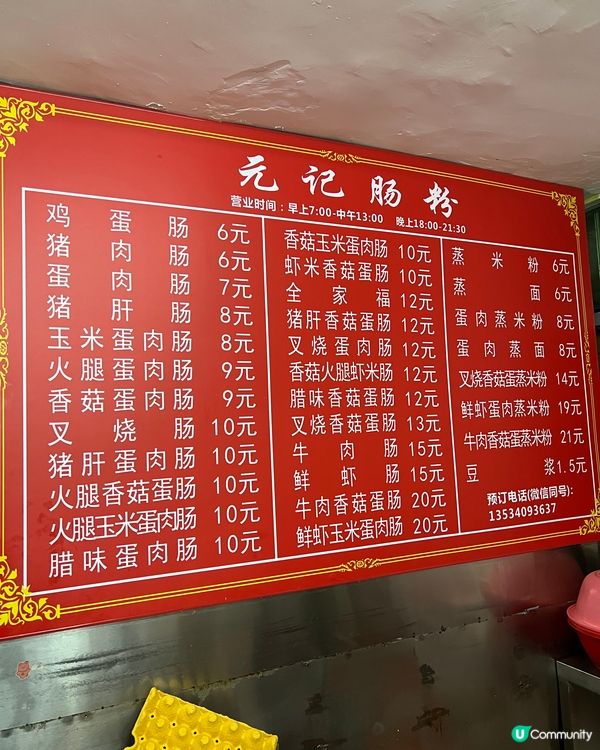 元记肠粉
营业时间：早上7:00-中午13:00 晚上18:00-21:30
鸡蛋肠 6元
猪肉肠 6元
蛋肉肠 7元
猪肝肠 8元
玉米蛋肉肠 8元
火腿蛋肉肠 9元
香菇蛋肉肠 9元
叉烧肠 10元
猪肝蛋肉肠 10元
火腿香菇蛋肠 10元
火腿玉米蛋肉肠 10元
腊味蛋肉肠 10元
香菇玉米蛋肉肠 10元
虾米香菇蛋肠 10元
全家福 12元
猪肝香菇蛋肠 12元
叉烧蛋肉肠 12元
香菇火腿虾米肠 12元
腊味香菇蛋肠 12元
叉烧香菇蛋肠 13元
牛肉肠 15元
鲜虾肠 15元
牛肉香菇蛋肠 20元
鲜虾玉米蛋肉肠 20元
蒸米粉 6元
蒸面 6元
蛋肉蒸米粉 8元
蛋肉蒸面 8元
叉烧香菇蛋蒸米粉 14元
鲜虾蛋肉蒸米粉 19元
牛肉香菇蛋蒸米粉 21元
豆浆 1.5元
预订电话(微信同号):
13534093637
U Community